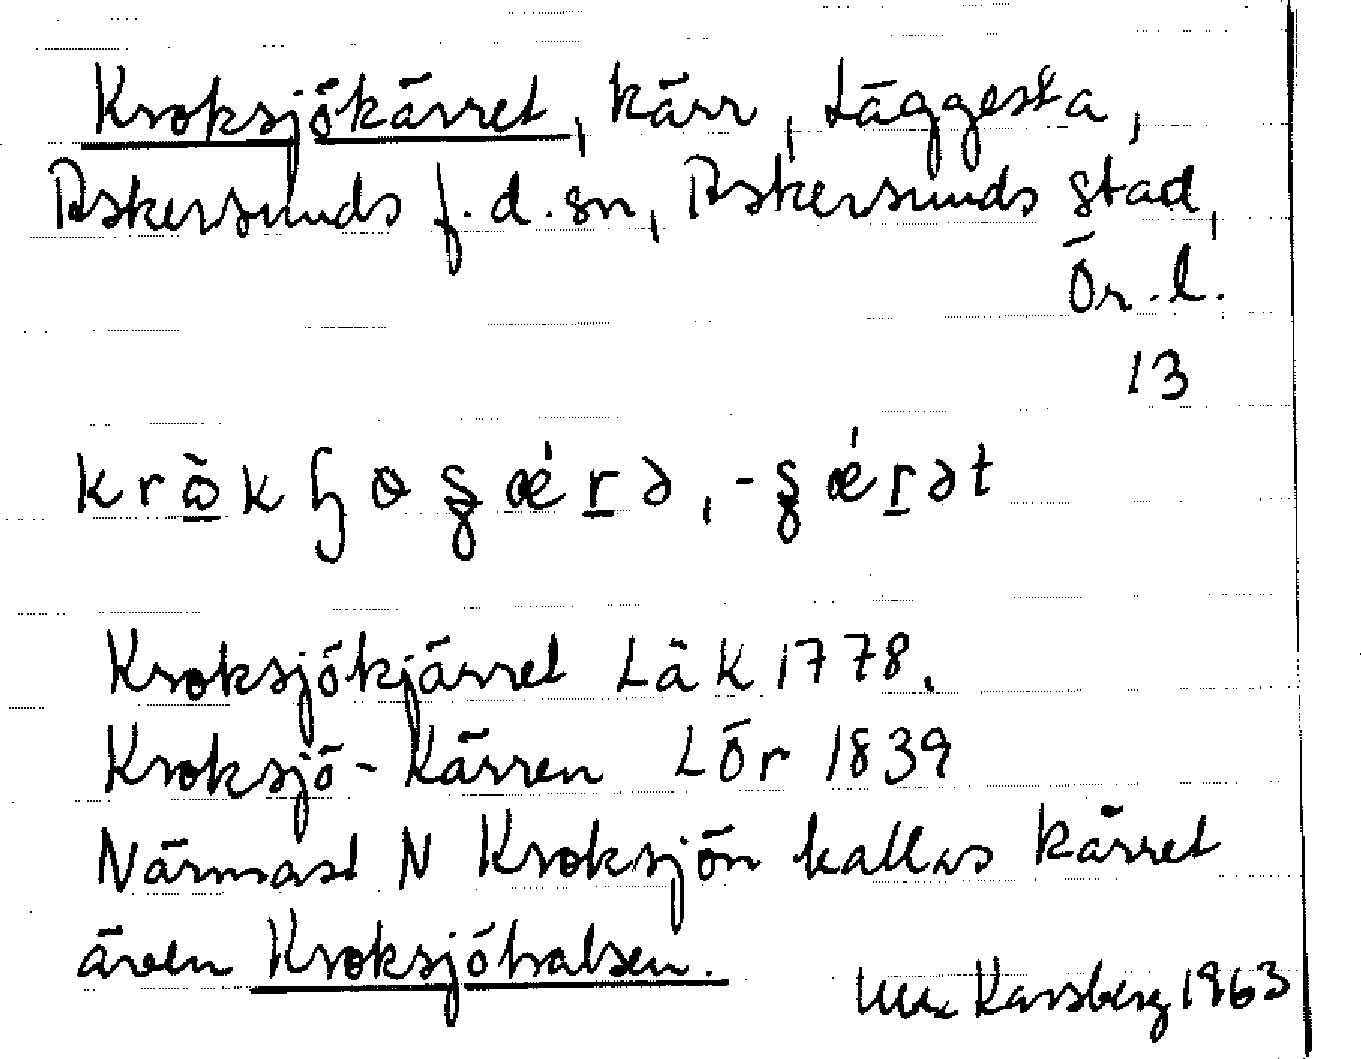 Kroksjökärret, kärr, Läggesta,
Askersunds f.d.sn, Askersunds stad,
Ör.l.
13
Kroksjökjärret LäK 1778.
Kroksjö-Kärren LÖr 1839
Närmast N Kroksjön kallas kärret
även Kroksjöhalsen.
Karsberg 1963